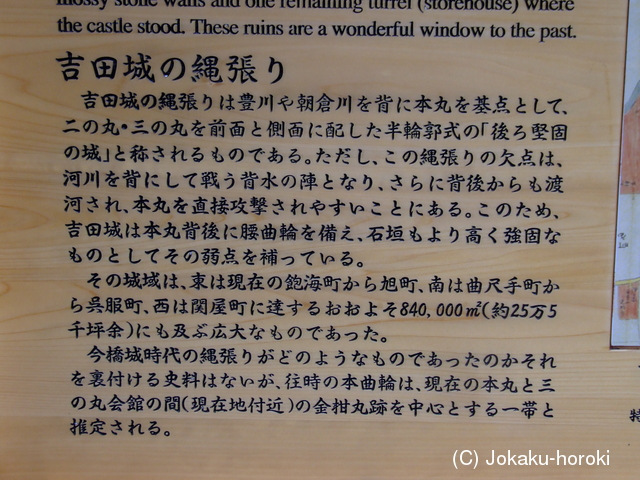 mossy stone walls and one remaining turret (storehouse) where
the castle stood. These ruins are a wonderful window to the past.
吉田城の縄張り
吉田城の縄張りは豊川や朝倉川を背に本丸を基点として、
二の丸・三の丸を前面と側面に配した半輪郭式の「後ろ堅固
の城」と称されるものである。ただし、この縄張りの欠点は、
河川を背にして戦う背水の陣となり、さらに背後からも渡
河され、本丸を直接攻撃されやすいことにある。このため、
吉田城は本丸背後に腰曲輪を備え、石垣もより高く強固な
ものとしてその弱点を補っている。
その城域は、東は現在の飽海町から旭町、南は曲尺手町か
ら呉服町、西は関屋町に達するおおよそ840,000㎡(約25万5
千坪余)にも及ぶ広大なものであった。
今橋城時代の縄張りがどのようなものであったのかそれ
を裏付ける史料はないが、往時の本曲輪は、現在の本丸と三
の丸会館の間(現在地付近)の金柑丸跡を中心とする一帯と
推定される。
特
(C) Jokaku-horoki